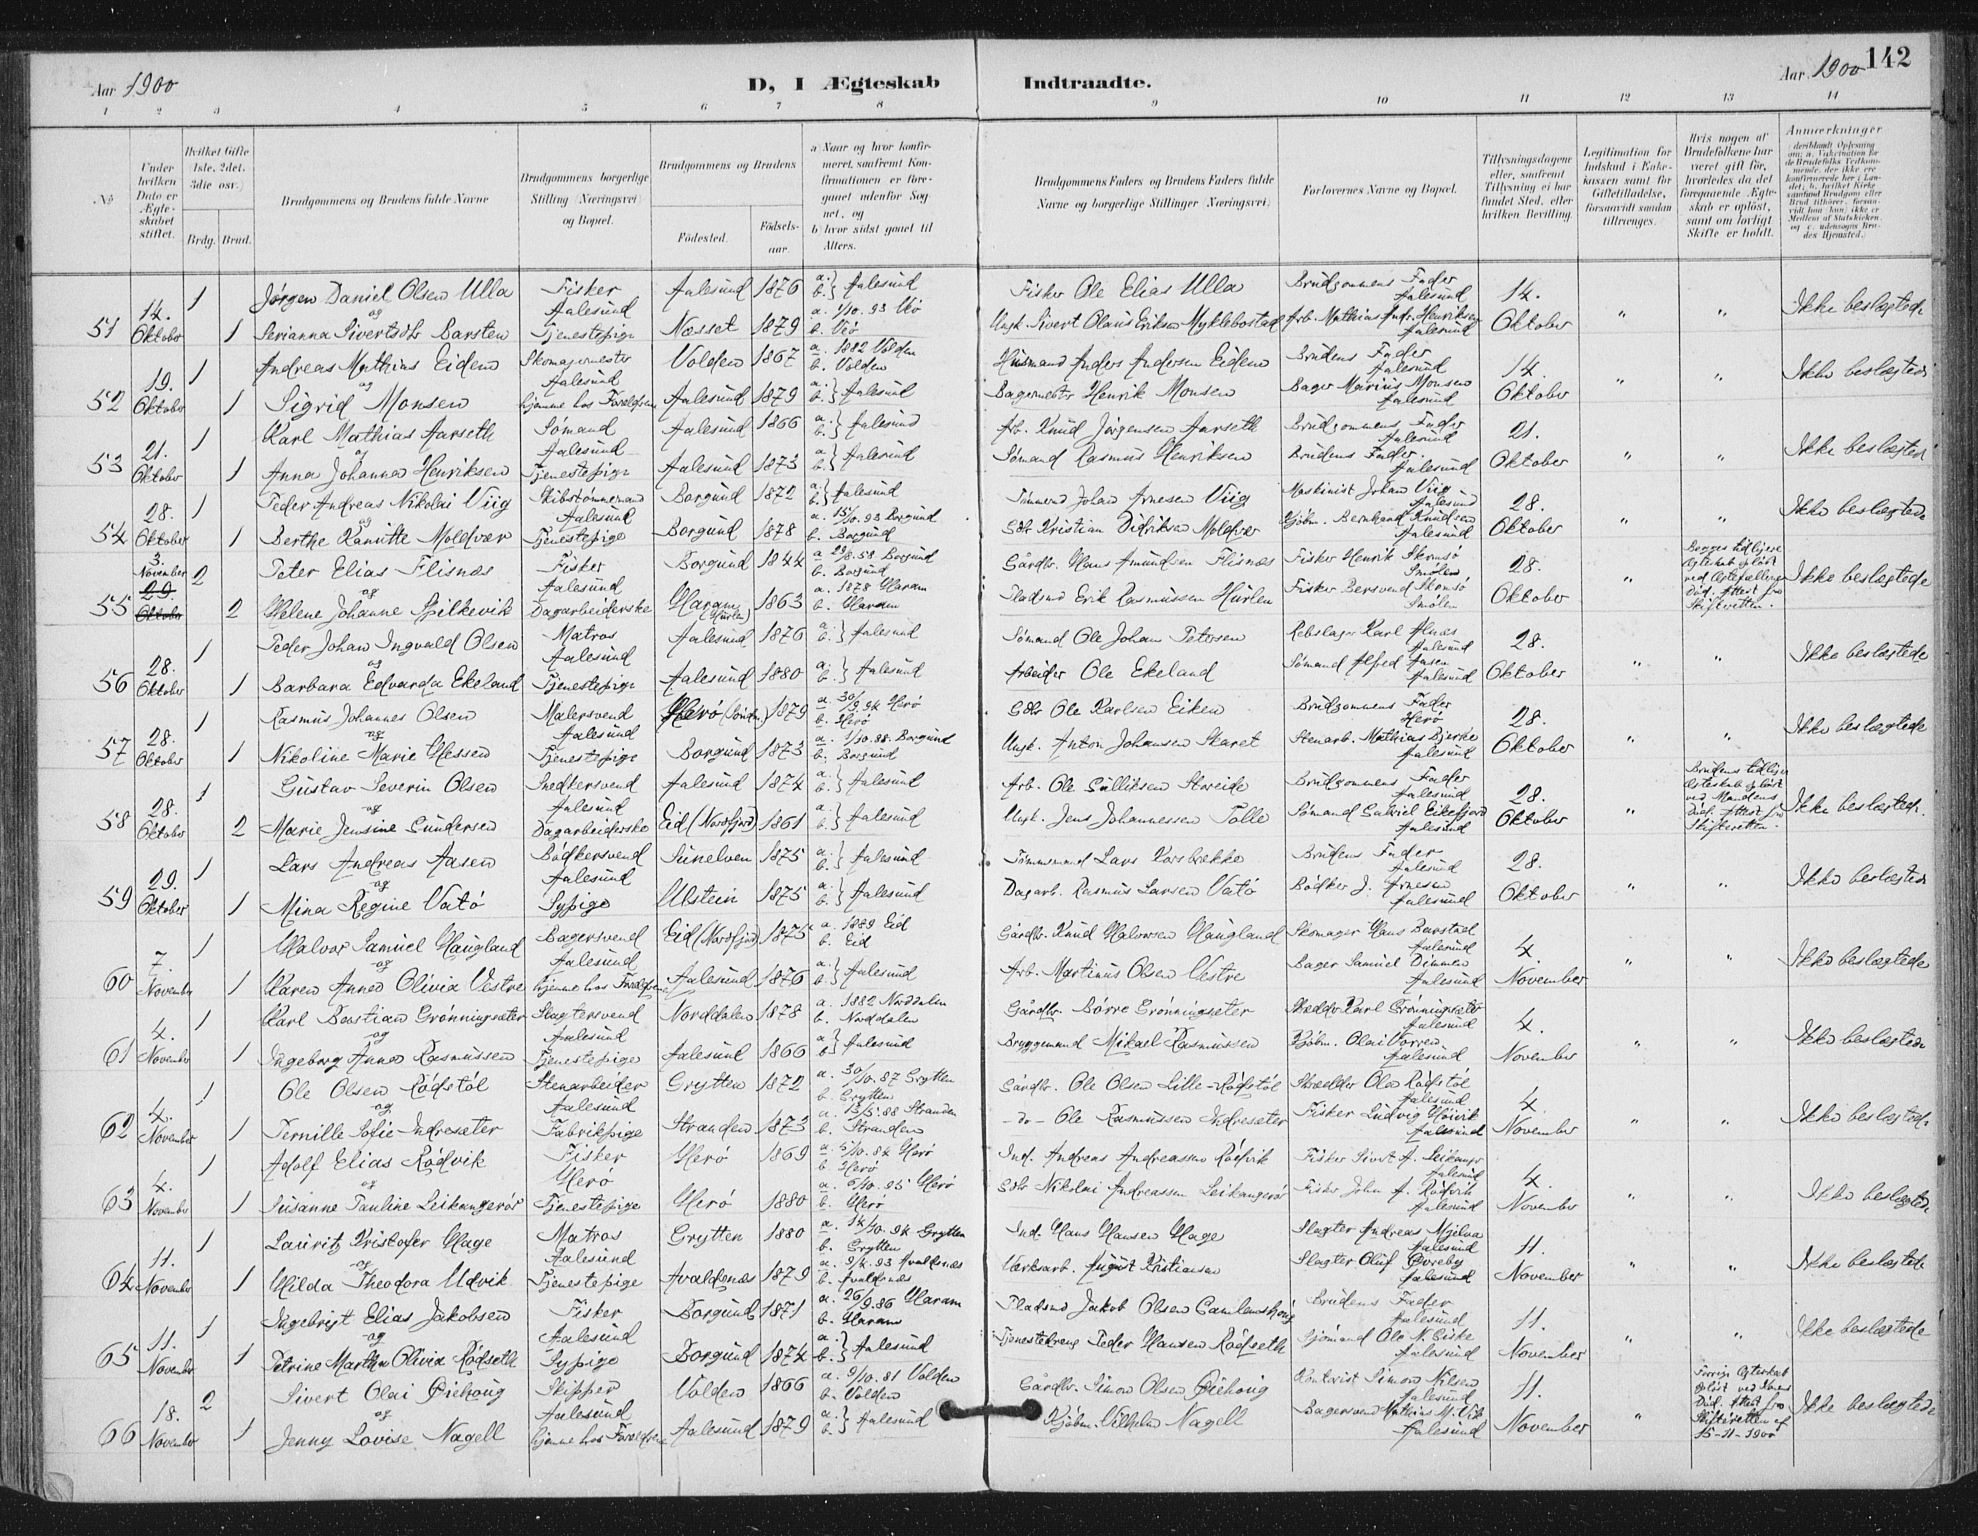 Aar 1900
D, I Ægteskab Indtraadte.
Aar 1900 142
1 2 3 4 5 6 7 8 9 10 11 12 13 14
No
Under hvilken Dato er Ægteskabet stiftet.
Hvilket Gifte 1ste, 2det, 3die osv.)
Brdg. Brud.
Brudgommens og Brudens fulde Navne
Brudgommens borgerlige Stilling (Næringsvei) og Bopæl.
Brudgommens og Brudens
Fødested. Fødselsaar.
a) Naar og hvor konfirmeret, saafremt Konfirmationen er foregaaet udenfor Sognet, og
b) hvor sidst gaaet til Alters.
Brudgommens Faders og Brudens Faders fulde Navne og borgerlige Stillinger (Næringsvei)
Forlovernes Navne og Bopæl.
Tillysningsdagene eller, saafremt Tillysning ei har fundet Sted, efter hvilken Bevilling.
Legitimation for Indskud i Enkekassen samt for Giftetilladelse, forsaavidt saadan tiltrænges.
Hvis nogen af Brudefolkene har været gift før, hvorledes da det foregaaende Ægteskab er opløst, samt om lovligt Skifte er holdt.
Anmærkninger
51 14. Oktober 1 Jørgen Daniel Olsen Ulla Fisker Aalesund Aalesund 1876 a. b. } Aalesund Fisker Ole Elias Ulla Brudgommens Fader Aalesund 14. Oktober " " Ikke beslægtede
og
1 Serianna Sivertsdtr Barsten Tjenestepige Næsset 1879 a. 1/10. 93 Veø b. Veø Ungk. Sivert Olaus Eriksen Myklebostad Arb. Mathias Andr. Henriksen Aalesund
52 19. Oktober 1 Andreas Mathias Eidem Skomagermester Aalesund Volden 1867 a. 1882 Volden b. Volden Husmand Anders Andersen Eidem Brudens Fader Aalesund 14. Oktober " " Ikke beslægtede
og
1 Sigrid Monsen hjemme hos Forældrene Aalesund 1879 a. b. } Aalesund Bagermester Henrik Monsen Bager Marius Monsen Aalesund
53 21. Oktober 1 Karl Mathias Aarseth Sømand Aalesund Aalesund 1866 a. b. } Aalesund Arb. Knud Jørgensen Aarseth Brudgommens Fader Aalesund 21. Oktober " " Ikke beslægtede
og
1 Anna Johanna Henriksen Tjenestepige Aalesund 1873 a. b. } Aalesund Sømand Rasmus Henriksen Brudens Fader. Aalesund
54 28. Oktober 1 Peder Andreas Nikolai Viig Skibstømmermand Aalesund Borgund 1872 a. b. } Aalesund Tømmerm. Johan Arnesen Viig Maskinist Johan Viig Aalesund 28. Oktober " " Ikke beslægtede
og
1 Berthe Kanutte Moldvær Tjenestepige Borgund 1878 a. 15/10. 93 Borgund b. Borgund Gdbr Kristian Didriksen Moldvær Kjøbm. Bernhard Knudsen Aalesund
55 3. November 29. Oktober 2 Peter Elias Flisnæs Fisker Aalesund Borgund 1844 a 29/8. 58 Borgund b. Borgund Gårdbr. Hans Amundsen Flisnæs Fisker Henrik Skomsø Smølen 28. Oktober " Begges tidligere Ægteskab opløst ved Ægtefællens Død. Attest fra Skifteretten. Ikke beslægtede
og
2 Helene Johanne Spilkevik Dagarbeiderske Haram (Hurlen) 1863 a. 1878 Haram b. Haram Pladsmd Erik Rasmussen Hurlen Fisker Bersvend Skomsø Smølen
56 28. Oktober 1 Peder Johan Ingvald Olsen Matros Aalesund Aalesund 1876 a. b. } Aalesund Sømand Ole Johan Petersen Rebslager Karl Alnæs Aalesund 28. Oktober " " Ikke beslægtede
og
1 Barbara Edvarda Ekeland Tjenestepige Aalesund 1880 a. b. } Aalesund Arbeider Ole Ekeland Sømand Alfred Aasen Aalesund
57 28. Oktober 1 Rasmus Johannes Olsen Malersvend Aalesund Herø (Søndm.) 1879 a. 30/9. 94 Herø b. Herø Gdbr Ole Karlsen Eiken Brudgommens Fader Herø 28. Oktober " " Ikke beslægtede
og
1 Nikoline Marie Hessen Tjenestepige Borgund 1873 a. 1/10. 88. Borgund b. Borgund Ungk. Anton Johansen Skaret Stenarb. Mathias Bjerke Aalesund
58 28. Oktober 1 Gustav Severin Olsen Snedkersvend Aalesund Aalesund 1874 a. b. } Aalesund Arb. Ole Gulliksen Streide Brudgommens Fader Aalesund 28. Oktober " Brudens tidligere Ægteskab opløst ved Mandens Død. Attest fra Skifteretten. Ikke beslægtede
og
2 Marie Jensine Gundersen Dagarbeiderske Eid (Nordfjord) 1861 a. b. } Aalesund Ungk. Jens Johannessen Tolle Sømand Gabriel Eikefjord Aalesund
59 29. Oktober 1 Lars Andreas Aasen Bødkersvend Aalesund Sunelven 1875 a. b. } Aalesund Tømmermand Lars Korsbrække Brudens Fader Aalesund 28. Oktober " " Ikke beslægtede
og
1 Mina Regine Vatø Sypige Ulstein 1875 a. b. } Aalesund Dagarb. Rasmus Larsen Vatø Bødker J. Arnesen Aalesund
60 7. November 1 Halvor Samuel Haugland Bagersvend Aalesund Eid (Nordfjord) 1875 a. 1889 Eid b. Eid Gårdbr. Knud Halvorsen Haugland Skomager Hans Barstad Aalesund 4. November " " Ikke beslægtede
og
1 Karen Anna Olivia Vestre hjemme hos Forældrene Aalesund 1876 a. b. } Aalesund Arb. Martinus Olsen Vestre Bager Samuel Dimmen Aalesund
61 4. November 1 Karl Bastian Grønningsæter Slagtersvend Aalesund Norddalen 1878 a. 1882 Norddalen b. Norddalen Gårdbr. Børre Grønningsæter Skrædder Karl Grønningsæter Aalesund 4. November " " Ikke beslægtede
og
1 Ingeborg Anna Rasmussen Tjenestepige Aalesund 1866 a. b. } Aalesund Bryggemand Mikael Rasmussen Kjøbm. Olai Vorren Aalesund
62 4. November 1 Ole Olsen Rødstøl Stenarbeider Aalesund Grytten 1872 a. 30/10. 87 Grytten b. Grytten Gårdbr. Ole Olsen Lille-Rødstøl Skrædder Ola Rødstøl Aalesund 4 November " " Ikke beslægtede
og
1 Pernille Sofie Indresæter Fabrikpige Stranden 1873 a. 15/5. 88 Stranden b. Stranden - do - Ole Rasmussen Indresæter Fisker Ludvig Høivik Aalesund
63 4. November 1 Adolf Elias Rødvik Fisker Herø Herø 1869 a. 5/10. 84 Herø b. Herø Ind. Andreas Andreassen Rødvik Fisker Sivert A. Leikanger Aalesund 4. November " " Ikke beslægtede
og
1 Susanne Pauline Leikangerør Tjenestepige Herø 1880 a. 6/10. 95 Herø b. Herø Gdbr Nikolai Andreassen Leikangerør Fisker John A. Rødvik Aalesund
64 11. November 1 Lauritz Kristofer Hage Matros Aalesund Grytten 1880 a. 14/10. 94 Grytten b. Grytten Ind. Hans Hansen Hage Slagter Andreas Mjelva Aalesund 11. November " " Ikke beslægtede
og
1 Hilda Theodora Udvik Tjenestepige Avaldsnæs 1879 a. 9/4. 93 Avaldsnæs b. Avaldsnæs Værksarb. August Kristiansen Slagter Oluf Øvreby Aalesund
65 11. November 1 Ingebrigt Elias Jakobsen Fisker Aalesund Borgund 1871 a. 26/9. 86 Haram b. Haram Pladsmd Jakob Olsen Gamlemshaug Brudens Fader Aalesund 11. November " " Ikke beslægtede
og
1 Petrine Martha Olivia Rødseth Sypige Borgund 1874 a. b. } Aalesund Tjenestedreng Peder Hansen Rødseth Sjømand Ole N. Giske Aalesund
66 18. November 2 Sivert Olai Øiehoug Skipper Aalesund Volden 1866 a. 9/10. 81 Volden b. Volden Gårdbr. Simon Olsen Øiehoug Kontorist Simon Nilsen Aalesund 11. November " Forrige Ægteskab opløst ved Konens Død. Attest fra Skifteretten af 15-11-1900 Ikke beslægtede
og
1 Jenny Lovise Nagell hjemme hos Forældrene Aalesund 1879 a. b. } Aalesund Kjøbm. Vilhelm Nagell Bagersvend Mathias M. Vik Aalesund